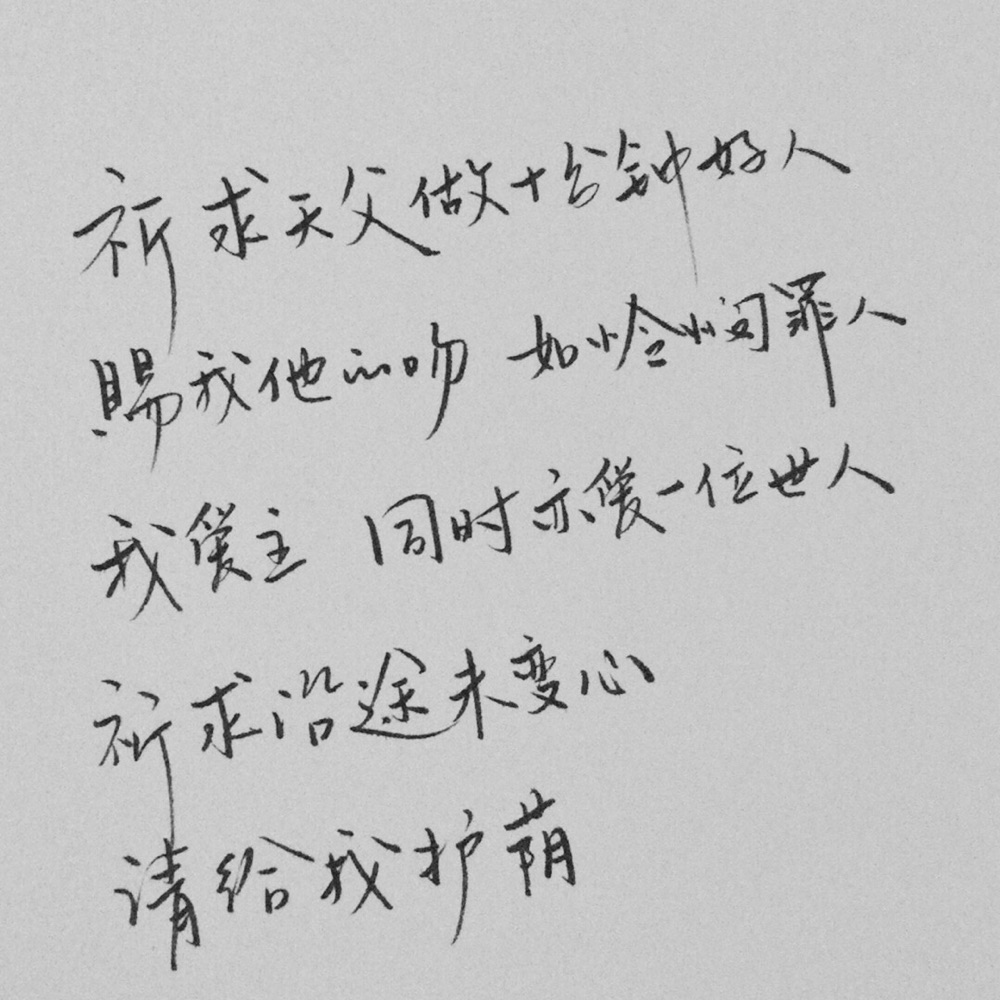 祈求天父做十分钟好人
賜我他的吻 如怜悯罪人
我愛主 同时亦愛一位世人
祈求沿途未变心
请给我护荫